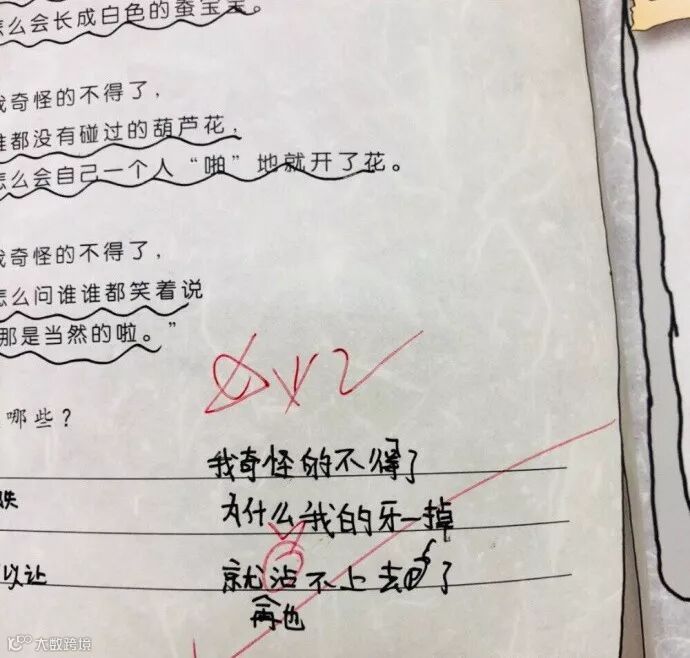 怎么会长成白色的蚕宝宝。
我奇怪的不得了，
谁都没有碰过的葫芦花，
怎么会自己一个人“啪”地就开了花。
我奇怪的不得了，
怎么问谁谁都笑着说
那是当然的啦。”
哪些？
我奇怪的不得了
为什么我的牙一掉
就沾不上去了
再也
以让
大数跨境